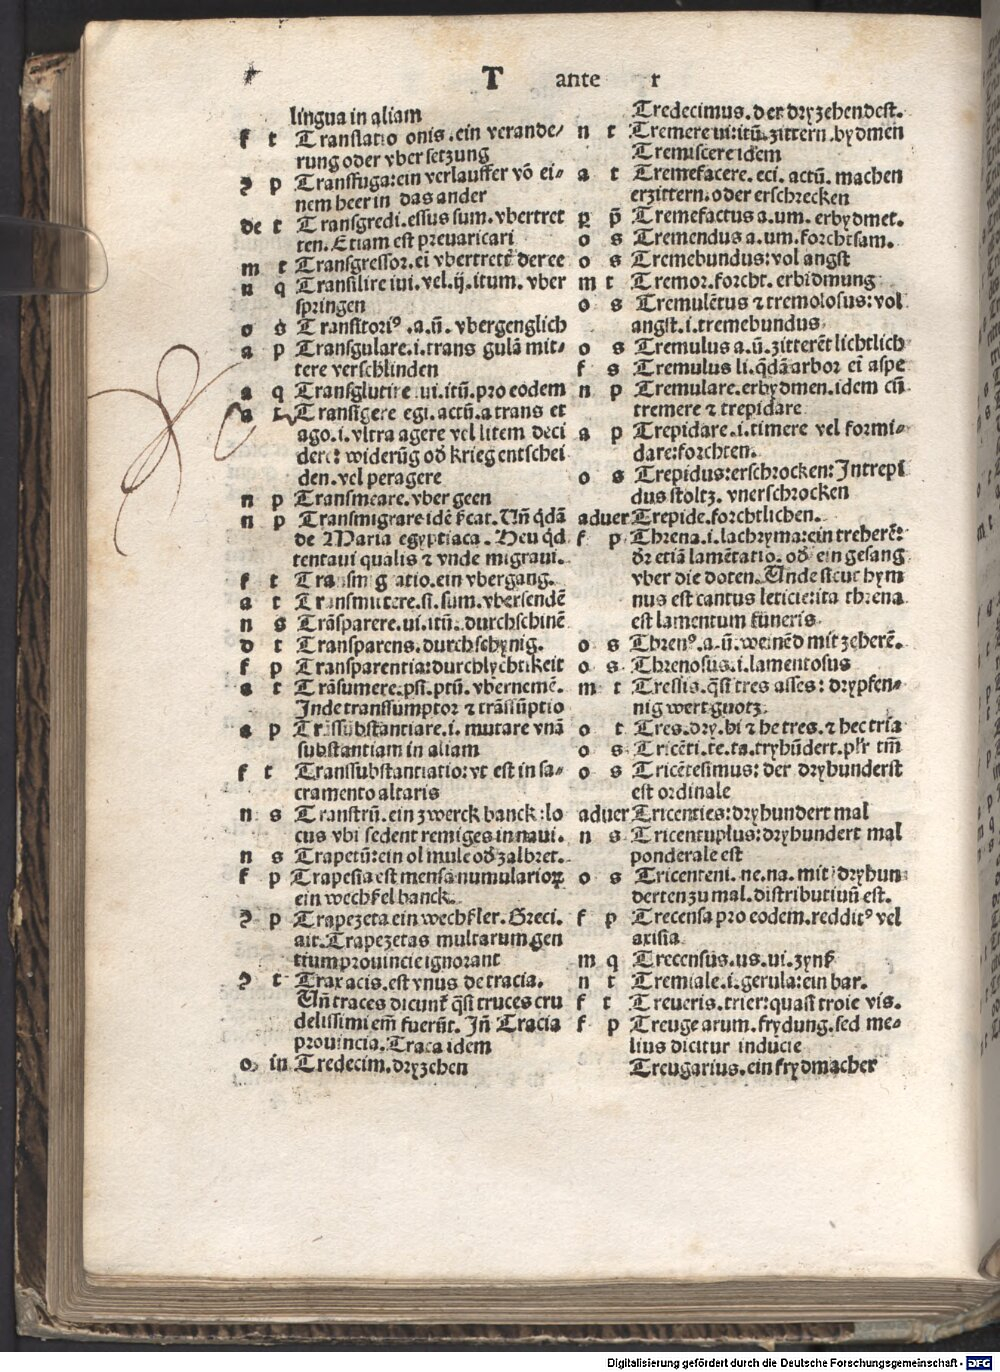 T ante r
lingua in aliam
f t Translatio onis.ein verande/
rung oder vbersetzung
ꝯ p Transfuga:ein verlauffer vō ei-
nem heer in das ander
de t Transgredi.essus sum.vbertret
ten.Etiam est preuaricari
m t Transgressor.ei vbertrettē der ee
n q Transilire iui.vel.ij.itum.vber
springen
o s Transitoriꝰ.a.ū.vbergenglich
a p Transgulare.i.trans gulā mit-
tere verschlinden
a q Transglutire.ui.itū.pro eodem
a t Transigere egi.actū.a trans et
ago.i.vltra agere vel litem deci
dere: widerūg od krieg entschei
den.vel peragere
n p Transmeare.vber geen
n p Transmigrare idē fcat.Uñ qdā
de Maria egyptiaca.Heu qd
tentaui qualis & vnde migraui.
f t Transmigratio.ein vbergang.
a t Transmittere.si.sum.vbersendē
n s Trāsparere.ui.itū.durchschinē
d t Transparens.durchschynig.
f p Transparentia:durchlychtikeit
a t Trāsumere.psi.ptū.vbernemē.
Inde transsumptor & trāssūptio
a p Trāssubstantiare.i.mutare vnā
substantiam in aliam
f t Transsubstantiatio:vt est in sa-
cramento altaris
n s Transtrū.ein zwerck banck:lo
cus vbi sedent remiges in naui.
n s Trapetū:ein ol mule od zalbret.
f p Trapesia est mensa numulariorꝝ
ein wechsel banck.
ꝯ p Trapezeta ein wechsler.Greci
ait.Trapezetas multarum gen
tium prouincie ignorant
ꝯ t Trax acis.est vnus de tracia.
Uñ traces dicunt qsi truces cru
delissimi em fuerūt.Iñ Tracia
prouincia.Traca idem
o in Tredecim.dryzehen
Tredecimus.der dryzehendest.
n t Tremere ui:itū.zittern.bydmen
Tremiscere idem
a t Tremefacere.eci.actū.machen
erzittern.oder erschrecken
Tremefactus a.um.erbydmet.
o s Tremendus a.um.forchtsam.
o s Tremebundus:vol angst
m t Tremor.forcht.erbidmung
o s Tremulētus & tremolosus:vol
angst.i.tremebundus
o s Tremulus a.ū.zitterēt lichtlich
f s Tremulus li.qdā arbor ei aspe
n p Tremulare.erbydmen.idem cū
tremere & trepidare
a p Trepidare.i.timere vel formi-
dare:forchten.
o s Trepidus:erschrocken:Intrepi
dus stoltz.vnerschrocken
aduer Trepide.forchtlichen.
f p Threna.i.lachryma:ein treherē:
ðr etiā lamētatio.od ein gesang
vber die doten.Unde sicut hym
nus est cantus leticie:ita threna
est lamentum funeris
o s Threnꝰ.a.ū.weinēd mit zeherē.
o s Threnosus.i.lamentosus
m t Tressis.qsi tres asses: drypfen-
nig wert guotz.
o t Tres.dry.hi & he tres.& hec tria
o s Tricēti.te.ta.tryhūdert.plr tm̄
o s Tricētesimus: der dryhunderst
est ordinale
aduer Tricenties:dryhundert mal
n s Tricentuplus:dryhundert mal
ponderale est
o s Tricenteni.ne.na.mit dryhun
derten zu mal.distributiuū est.
f p Trecensa pro eodem.redditꝰ vel
axisia
m q Trecensus.us.ui.zynß
n t Tremiale.i.gerula:ein bar.
f t Treueris.trier:quasi troie vis.
f p Treuge arum.frydung.sed me-
lius dicitur inducie
Treugarius.ein frydmacher
Digitalisierung gefördert durch die Deutsche Forschungsgemeinschaft - DFG